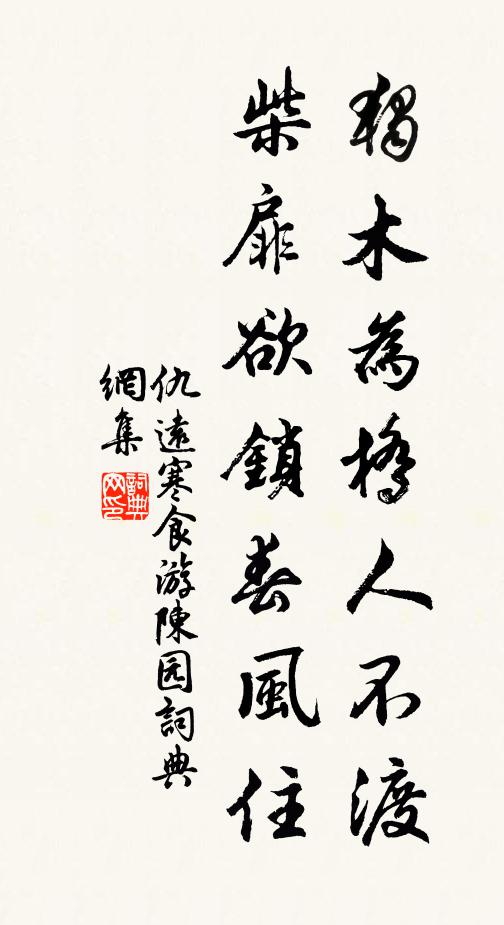 獨木為橋人不渡
柴扉欲鎖春風住
仇遠寒食游陳园詞典
網集
詞典
网印